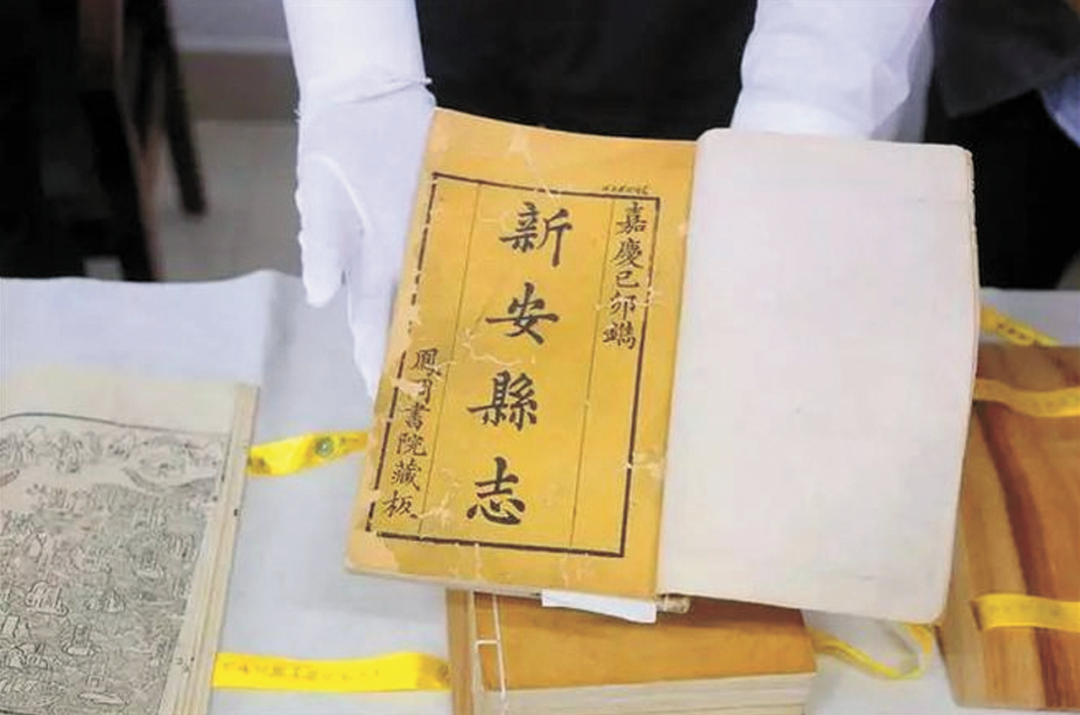 嘉慶己卯鐫
新安縣志
鳳岡書院藏板